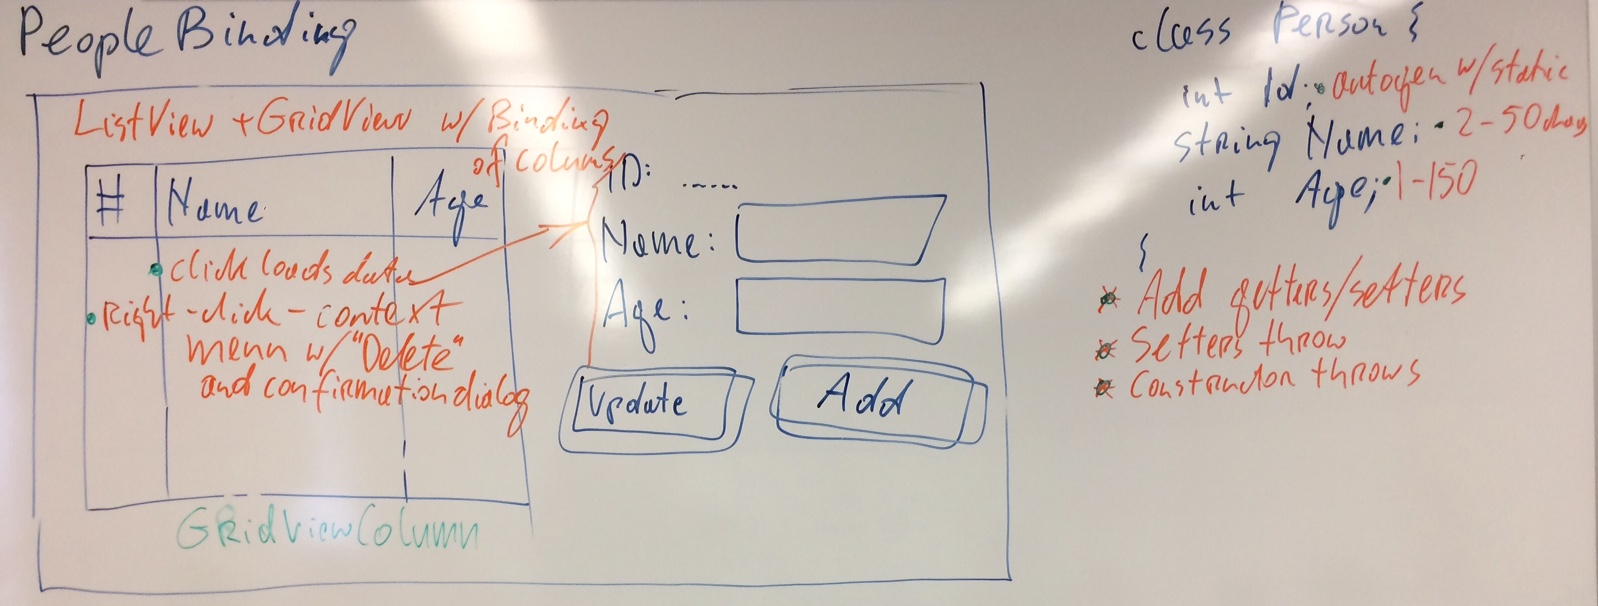 People Binding
ListView + GridView w/ Binding
of colums
# Name Age
• click loads data
• Right-click-context
menu w/ "Delete"
and confirmation dialog
GridViewColumn
ID: ......
Name:
Age:
Update
Add
class Person {
int Id; • autogen w/static
string Name; • 2-50 chars
int Age; • 1-150
}
* Add getters/setters
* Setters throw
* Constructor throws